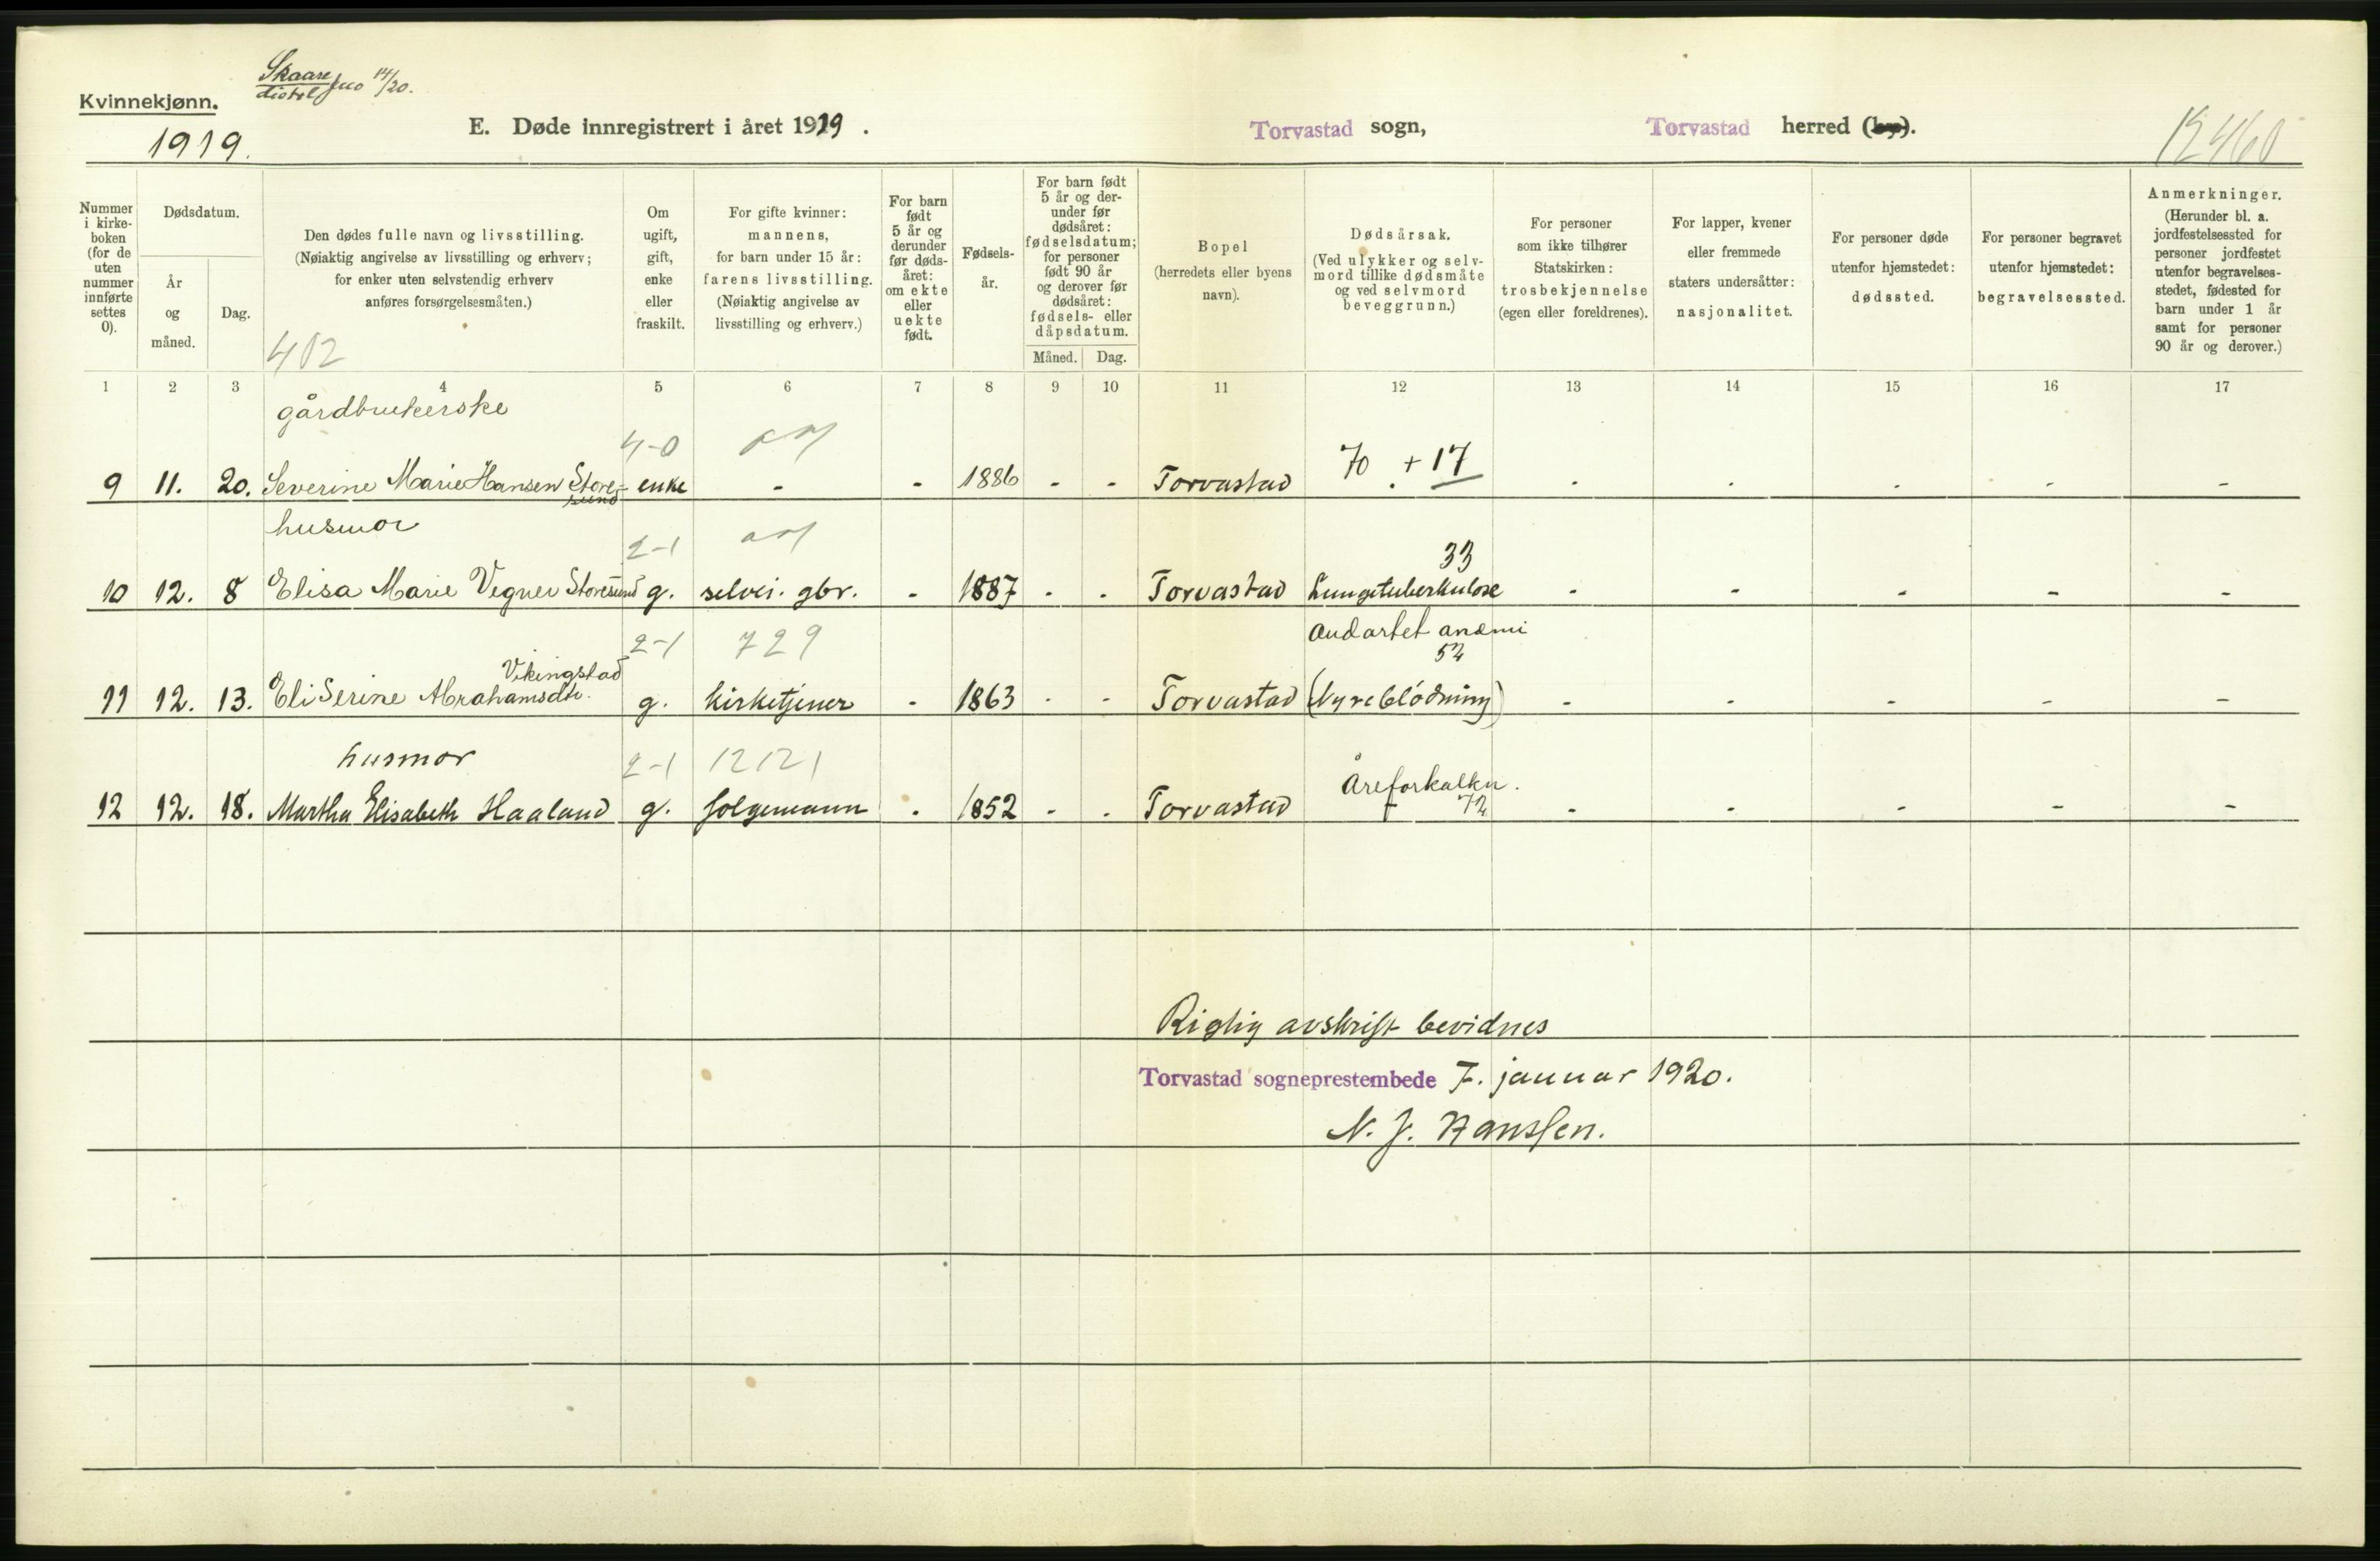 Kvinnekjønn.
Skaare
14/20.
1919.
E. Døde innregistrert i året 1919.
Torvastad sogn,
Torvastad herred (by).
12460
Nummer i kirke-boken (for de uten nummer innførte settes 0).
Dødsdatum.
År og måned.
Dag.
Den dødes fulle navn og livsstilling.
(Nøiaktig angivelse av livsstilling og erhverv;
for enker uten selvstendig erhverv
anføres forsørgelsesmåten.)
402
Om ugift, gift, enke eller fraskilt.
For gifte kvinner:
mannens,
for barn under 15 år:
farens livsstilling.
(Nøiaktig angivelse av
livsstilling og erhverv.)
For barn født 5 år og derunder før døds-året: om ekte eller uekte født.
Fødsels-år.
For barn født 5 år og der-under før dødsåret: fødselsdatum; for personer født 90 år og derover før dødsåret: fødsels- eller dåpsdatum.
Måned. Dag.
Bopel
(herredets eller byens
navn).
Dødsårsak.
(Ved ulykker og selv-
mord tillike dødsmåte
og ved selvmord
beveggrunn.)
For personer
som ikke tilhører
Statskirken:
trosbekjennelse
(egen eller foreldrenes).
For lapper, kvener
eller fremmede
staters undersåtter:
nasjonalitet.
For personer døde
utenfor hjemstedet:
dødssted.
For personer begravet
utenfor hjemstedet:
begravelsessted.
Anmerkninger.
(Herunder bl. a.
jordfestelsessted for
personer jordfestet
utenfor begravelses-
stedet, fødested for
barn under 1 år
samt for personer
90 år og derover.)
1 2 3 4 5 6 7 8 9 10 11 12 13 14 15 16 17
gårdbrukerske
4-0
70 + 17
9 11. 20. Severine Marie Hansen Store-sund enke - - 1886 - - Torvastad - - - - - -
husmor
2-1
33
10 12. 8 Elisa Marie Vegner Storesund g. selvei. gbr. - 1887 - - Torvastad Lungetuberkulose - - - - -
2-1 729
Ondartet anæmi
52
Vikingstad
11 12. 13. Eli Serine Abrahamsdtr. g. kirketjener - 1863 - - Torvastad (Nyreblödning) - - - - -
husmor
2-1 12121
Åreforkalkn.
72
12 12. 18. Martha Elisabeth Haaland g. folgemann - 1852 - - Torvastad - - - - - -
Rigtig avskrift bevidnes
Torvastad sogneprestembede 7. januar 1920.
N. J. Hanssen.